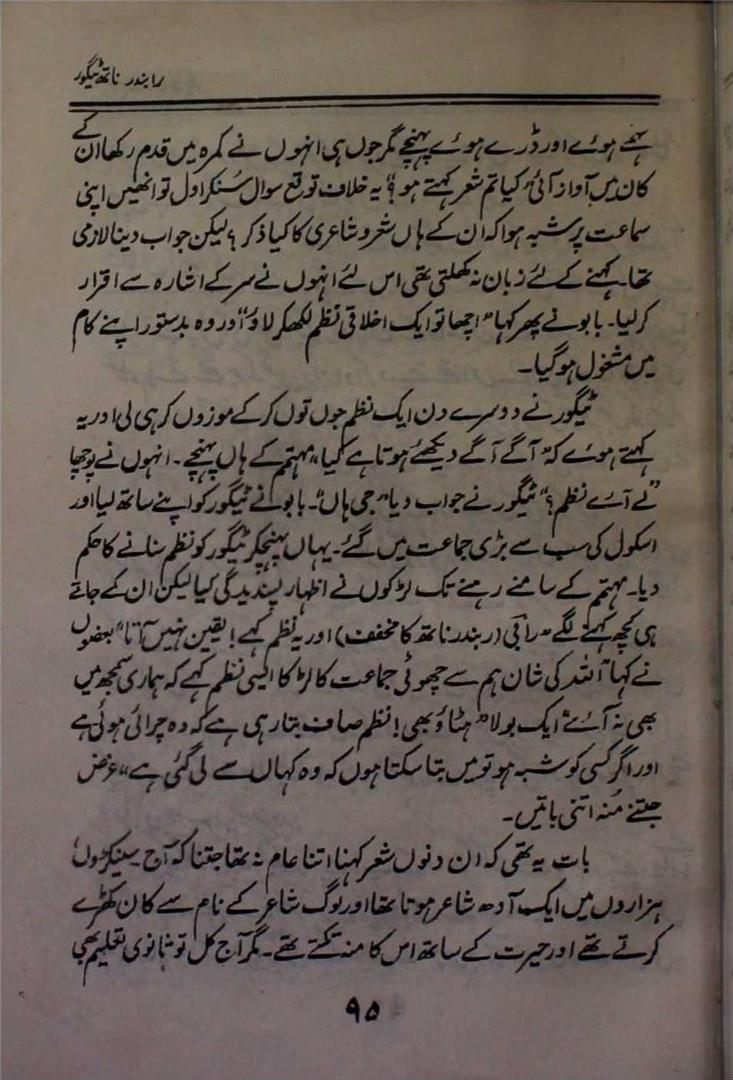 رابندر ناتھ ٹیگور
سہمے ہوئے اور ڈرے ہوئے پہنچے مگر جوں ہی انہوں نے کمرہ میں قدم رکھا ان کے
کان میں آواز آئی "کیا تم شعر کہتے ہو؟" یہ خلاف توقع سوال سنکر اول تو انھیں اپنی
سماعت پر شبہ ہوا کہ ان کے ہاں شعر و شاعری کا کیا ذکر؟ لیکن جواب دینا لازمی
تھا۔ کہنے کے لئے زبان نہ کھلتی تھی اس لئے انہوں نے سر کے اشارہ سے اقرار
کر لیا۔ بابو نے پھر کہا "اچھا تو ایک اخلاقی نظم لکھکر لاؤ" اور وہ بدستور اپنے کام
میں مشغول ہو گیا۔
ٹیگور نے دوسرے دن ایک نظم جوں توں کر کے موزوں کر ہی لی اور یہ
کہتے ہوئے کہ "آگے آگے دیکھئے ہوتا ہے کیا" مہتمم کے ہاں پہنچے۔ انہوں نے پوچھا
"لے آئے نظم؟" ٹیگور نے جواب دیا "جی ہاں"۔ بابو نے ٹیگور کو اپنے ساتھ لیا اور
اسکول کی سب سے بڑی جماعت میں گئے۔ یہاں پہنچکر ٹیگور کو نظم سنانے کا حکم
دیا۔ مہتمم کے سامنے رہنے تک لڑکوں نے اظہار پسندیدگی کیا لیکن ان کے جاتے
ہی کچھ کہنے لگے "رابی (ربندر ناتھ کا مخفف) اور یہ نظم کہے! یقین نہیں آتا" بعضوں
نے کہا "اللہ کی شان ہم سے چھوٹی جماعت کا لڑکا ایسی نظم کہے کہ ہماری سمجھ میں
بھی نہ آئے" ایک بولا "ہٹاؤ بھی! نظم صاف بتا رہی ہے کہ وہ چرائی ہوئی ہے
اور اگر کسی کو شبہ ہو تو میں بتا سکتا ہوں کہ وہ کہاں سے لی گئی ہے" غرض
جتنے منہ اتنی باتیں۔
بات یہ تھی کہ ان دنوں شعر کہنا اتنا عام نہ تھا جتنا کہ آج سینکڑوں
ہزاروں میں ایک آدھ شاعر ہوتا تھا اور لوگ شاعر کے نام سے کان کھڑے
کرتے تھے اور حیرت کے ساتھ اس کا منہ تکتے تھے۔ مگر آج کل تو ثانوی تعلیم بھی
۹۵